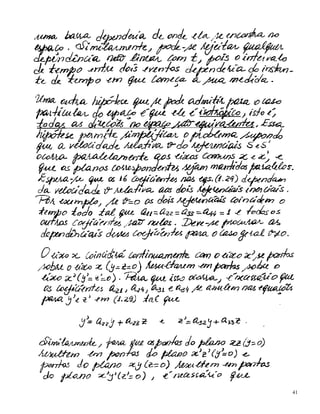 uma barra dependeria de onde ela se encontra no
espaço. Similarmente, pode-se rejeitar qualquer
dependência não linear com t, pois o intervalo
de tempo entre dois eventos dependeria do instan-
te de tempo em que começa a sua medida.
Uma outra hipótese que se pode admitir para o caso
particular do espaço é que ele é isotrópico, isto é,
todas as direções no espaço são equivalentes. Essa
hipótese permite simplificar o problema supondo
que a velocidade relativa v do referenciais S e S'
ocorra paralelamente aos eixos comuns x e x', e
que os planos correspondentes sejam mantidos paralelos.
Espera-se que os 16 coeficientes nas eqs. (1.29) dependam
da velocidade v relativa aos dois referenciais inerciais.
Por exemplo, se v=0 os dois referenciais coincidem o
tempo todo tal que a₁₁=a₂₂=a₃₃=a₄₄=1 e todos os
outros coeficientes são nulos. Deve-se procurar as
dependências desses coeficientes para o caso geral v≠0.
O eixo x coincidirá continuamente com o eixo x' se pontos
sobre o eixo x (y=z=0) resultarem em pontos sobre o
eixo x' (y'=z'=0). Para que isso ocorra, é necessário que
os coeficientes a₂₁, a₂₄, a₃₁ e a₃₄ se anulem nas equações
para y' e z' em (1.29) tal que
y'= a₂₂y + a₂₃z e z'= a₃₂y + a₃₃z.
Similarmente, para que os pontos do plano xz (y=0)
resultem em pontos do plano x'z' (y'=0) e
pontos do plano xy (z=0) resultem em pontos
do plano x'y' (z'=0), é necessário que
41